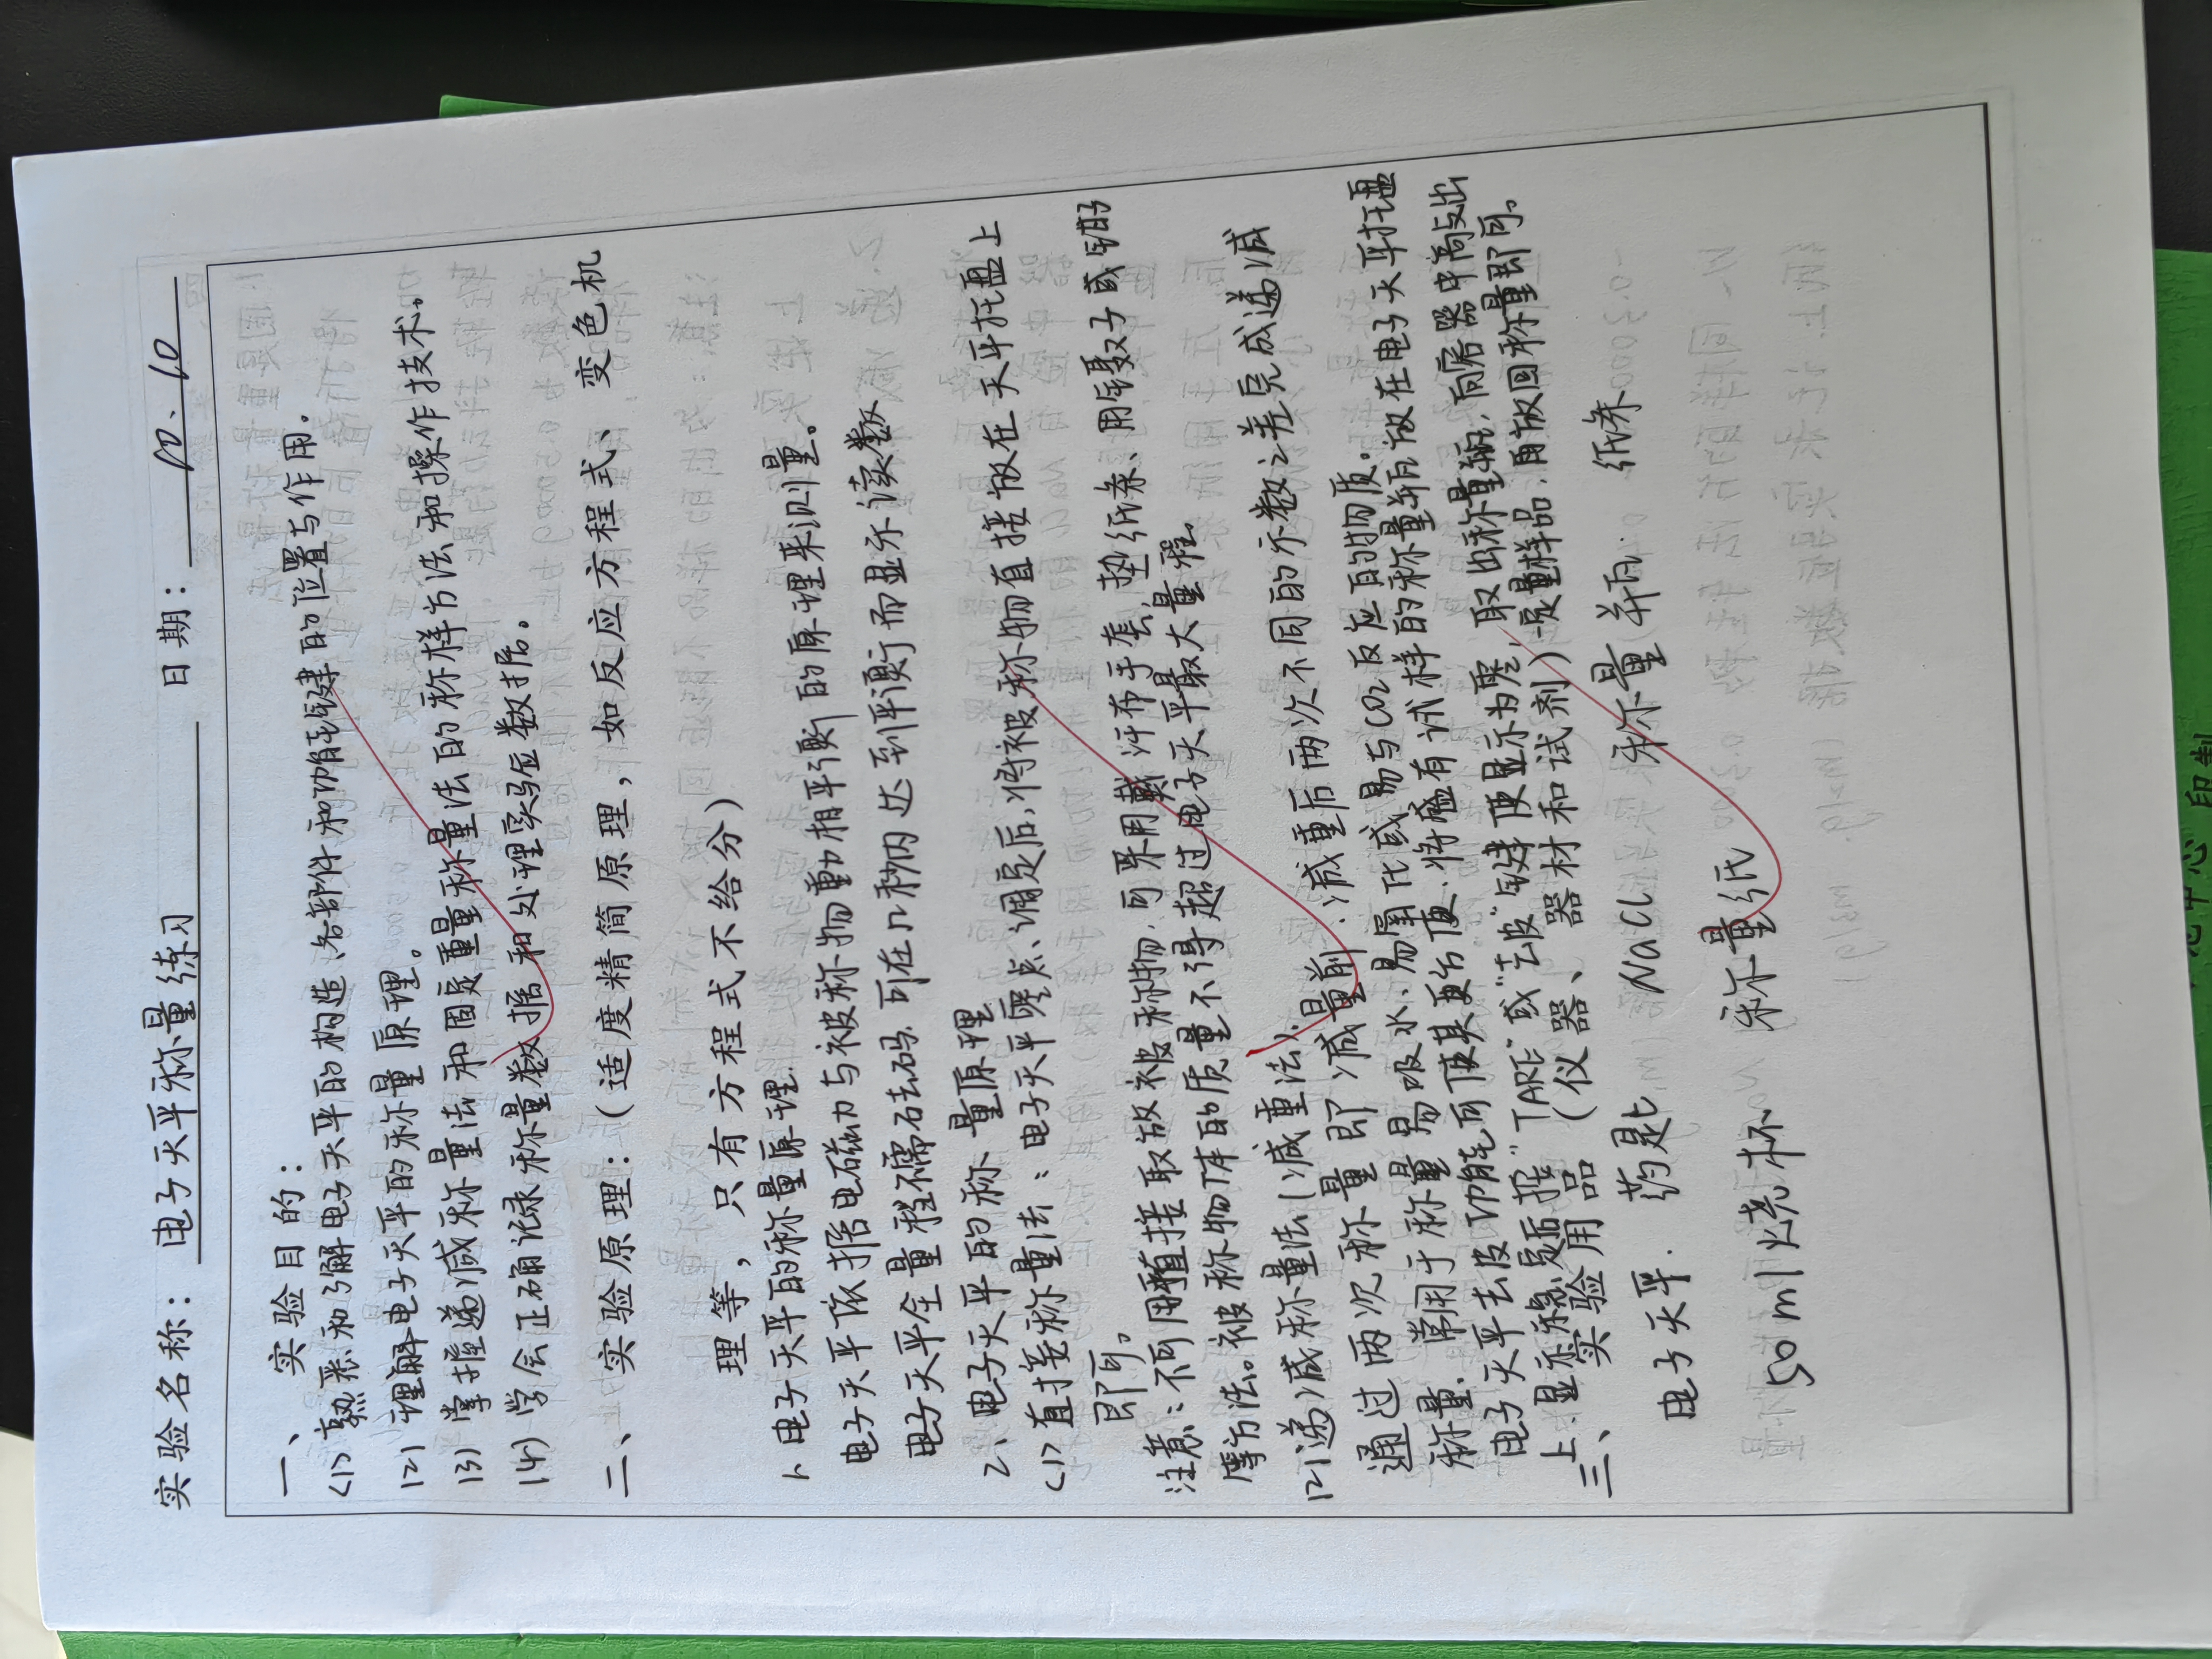 实验名称：电子天平称量练习 日期：10、10
一、实验目的：
(1) 熟悉和了解电子天平的构造、各部件和功能键的位置与作用.
(2) 理解电子天平的称量原理。
(3) 掌握递减称量法和固定质量称量法的称样方法和操作技术。
(4) 学会正确记录称量数据和处理实验数据。
二、实验原理：(适度精简原理，如反应方程式、变色机
理等，只有方程式不给分)
1、电子天平的称量原理.
电子天平依据电磁力与被称物重力相平衡的原理来测量。
电子天平全量程不需砝码 可在几秒内达到平衡而显示读数
2、电子天平的称量原理
(1) 直接称量法：电子天平零点、调定后，将被称物直接放在天平托盘上
即可。
注意：不可用手直接取放被称物，可采用戴汗布手套、垫纸条、用镊子或钳的
等方法。被称物体的质量不得超过电子天平最大量程.
(2) 递减称量法(减重法)：
通过两次称量即减量前、减重后两次不同的示数之差完成递减
称量. 常用于称量易吸水、易氧化或易与CO2反应的物质.
电子天平去皮功能可使其更方便. 将盛有试样的称量瓶放在电子天平托盘
上.显示稳定后按"TARE"或"去皮"键使显示为零. 取出称量瓶，向容器中敲出
一定量样品，再放回称量即可。
三、实验用品 (仪器、器材和试剂)
电子天平. 药匙 NaCl 称量瓶. 纸条
50ml烧杯 称量纸